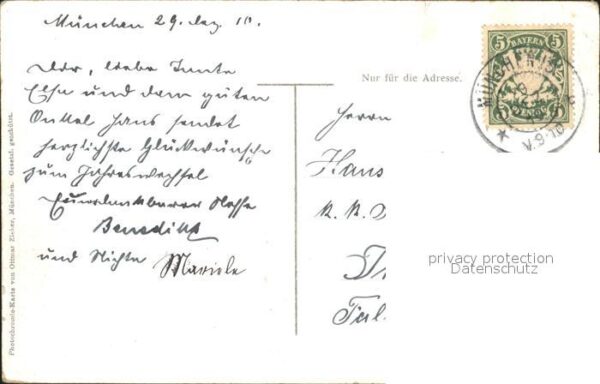 München 29. Dez. 10.
Dir, liebe Tante
Else und dem guten
Onkel Hans sendet
herzlichste Glückwünsche
zum Jahreswechsel
Euer dankbarer Neffe
Benedikt
und Nichte Mariele
Photochromie-Karte von Ottmar Zieher, München. Gesetzl. geschützt.
Nur für die Adresse.
Herrn
Hans
K. K.
Tal.
5 BAYERN 5
MÜNCHEN
V.9-10
privacy protection
Datenschutz